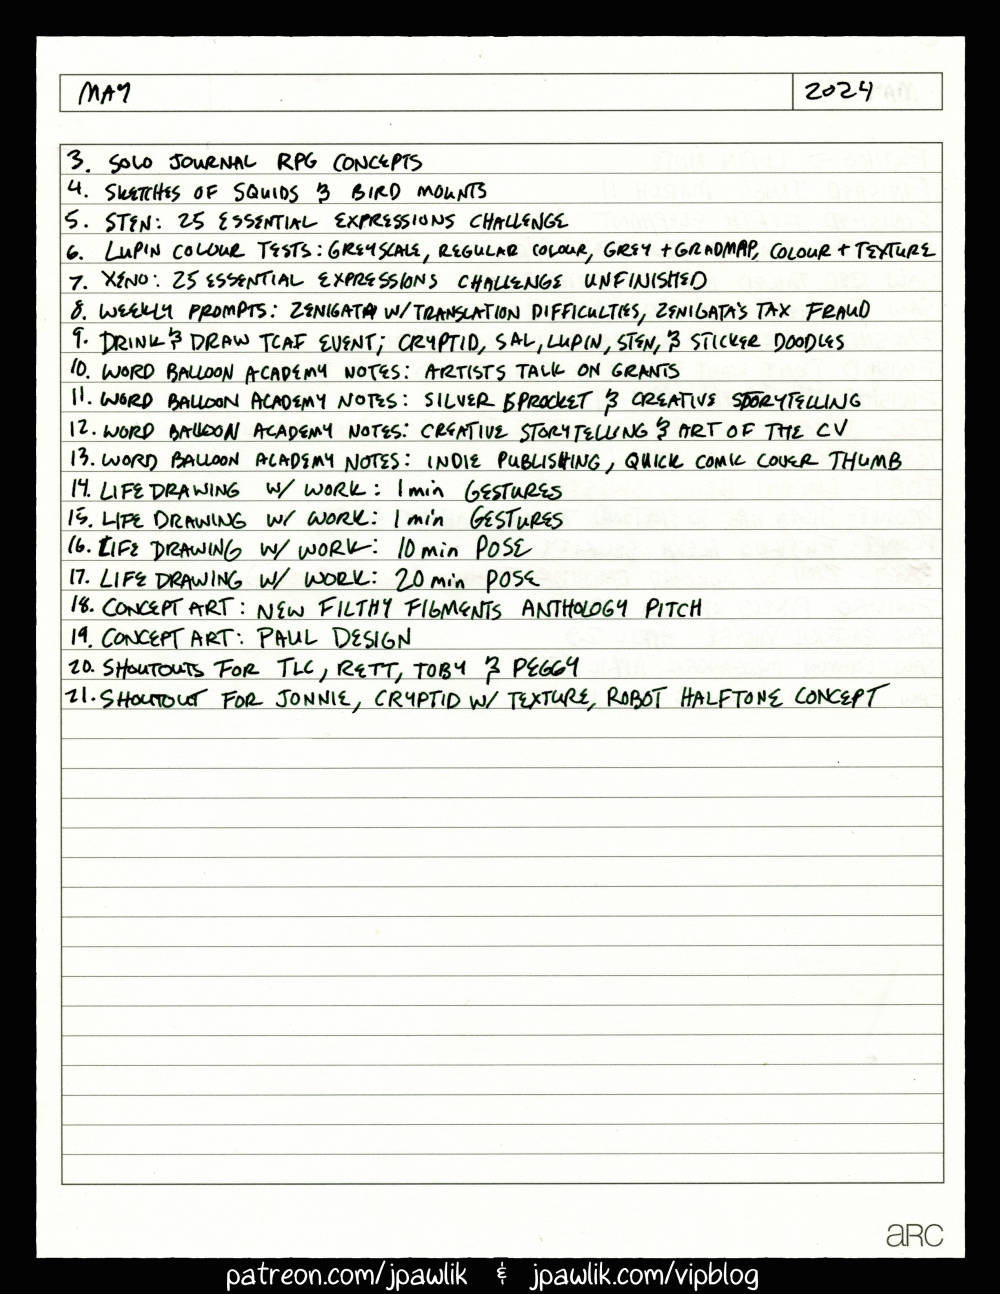 MAY 2024
3. SOLO JOURNAL RPG CONCEPTS
4. SKETCHES OF SQUIDS & BIRD MOUNTS
5. STEN: 25 ESSENTIAL EXPRESSIONS CHALLENGE
6. LUPIN COLOUR TESTS: GREYSCALE, REGULAR COLOUR, GREY + GRADMAP, COLOUR + TEXTURE
7. XENO: 25 ESSENTIAL EXPRESSIONS CHALLENGE UNFINISHED
8. WEEKLY PROMPTS: ZENIGATA W/ TRANSLATION DIFFICULTIES, ZENIGATA'S TAX FRAUD
9. DRINK & DRAW TCAF EVENT; CRYPTID, SAL, LUPIN, STEN, & STICKER DOODLES
10. WORD BALLOON ACADEMY NOTES: ARTISTS TALK ON GRANTS
11. WORD BALLOON ACADEMY NOTES: SILVER SPROCKET & CREATIVE STORYTELLING
12. WORD BALLOON ACADEMY NOTES: CREATIVE STORYTELLING & ART OF THE CV
13. WORD BALLOON ACADEMY NOTES: INDIE PUBLISHING, QUICK COMIC COVER THUMB
14. LIFE DRAWING W/ WORK: 1 min GESTURES
15. LIFE DRAWING W/ WORK: 1 min GESTURES
16. LIFE DRAWING W/ WORK: 10 min POSE
17. LIFE DRAWING W/ WORK: 20 min POSE
18. CONCEPT ART: NEW FILTHY FIGMENTS ANTHOLOGY PITCH
19. CONCEPT ART: PAUL DESIGN
20. SHOUTOUTS FOR TLC, RETT, TOBY & PEGGY
21. SHOUTOUT FOR JONNIE, CRYPTID W/ TEXTURE, ROBOT HALFTONE CONCEPT
aRC
patreon.com/jpawlik & jpawlik.com/vipblog